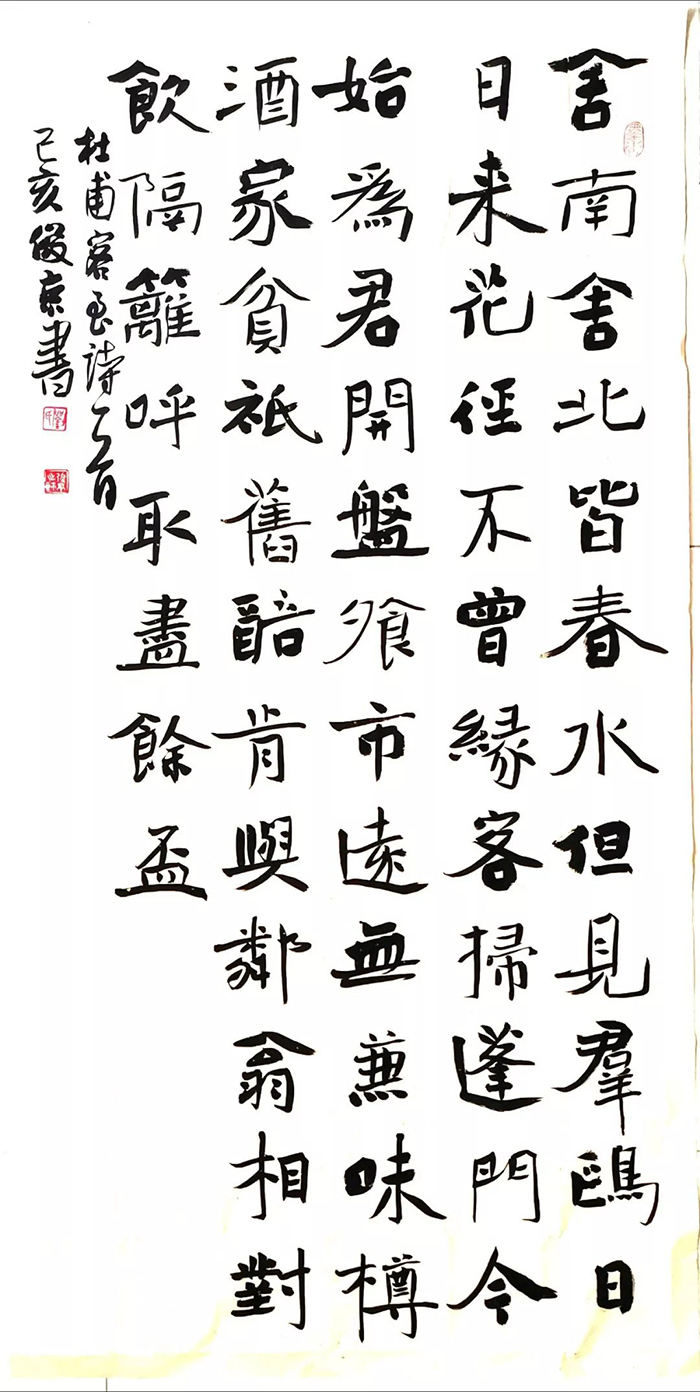 舍南舍北皆春水但見羣鷗日
日来花徑不曾緣客掃蓬門今
始爲君開盤飱市遠無蕪味樽
酒家貧衹舊醅肯與鄰翁相對
飲隔籬呼取盡餘盃
杜甫客至詩一首
己亥俊京書